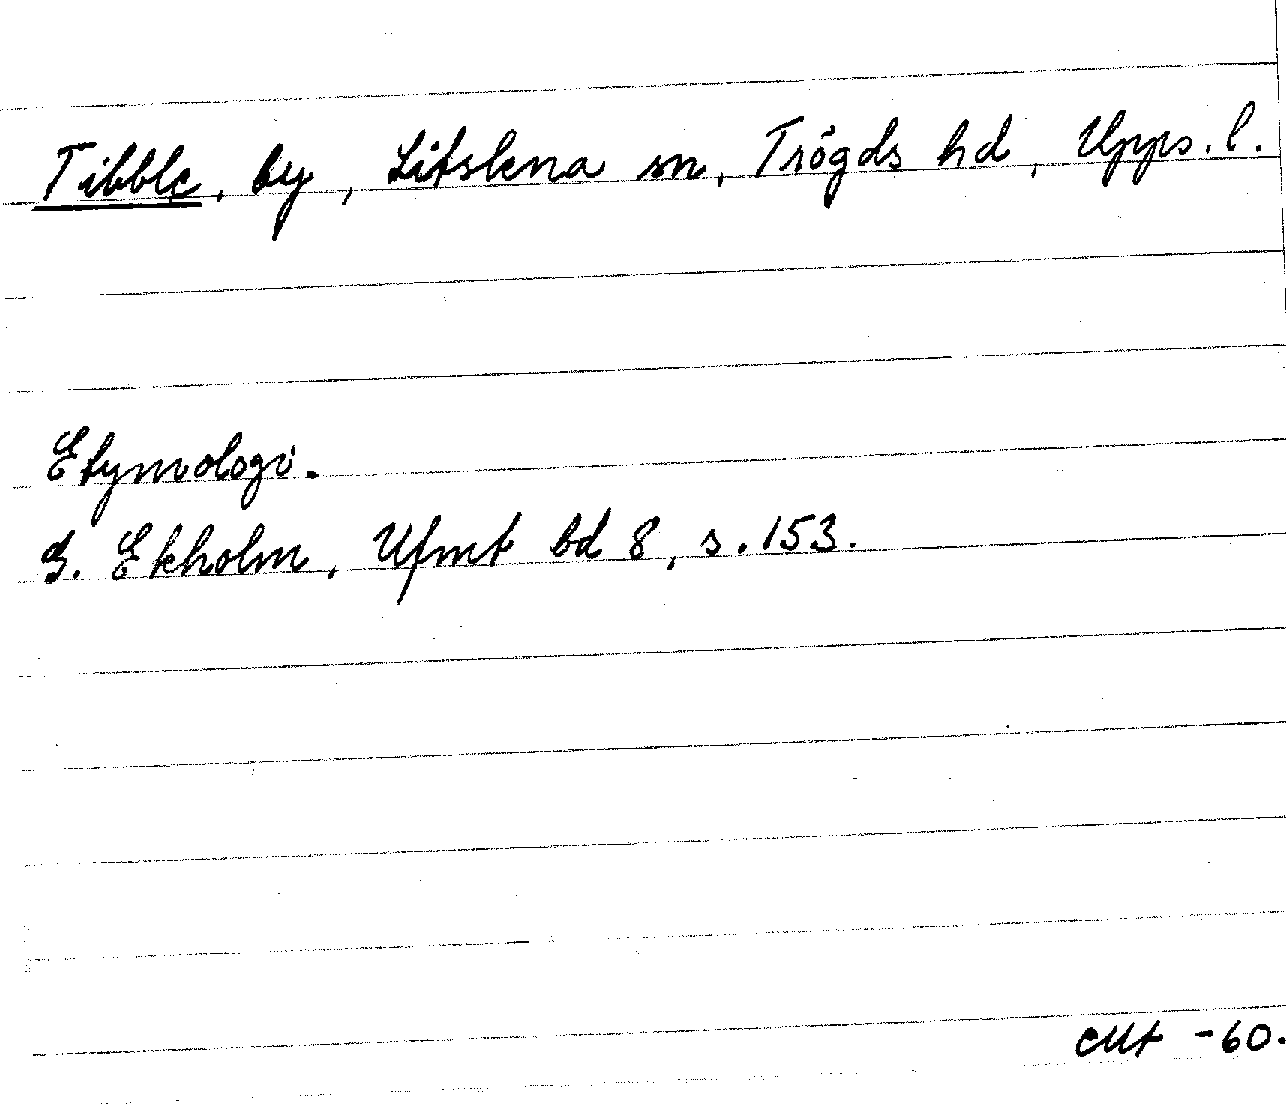 Tibble, by, Litslena sn, Trögds hd, Upps. l.
Etymologi.
G. Ekholm, Ufmt bd 8, s. 153.
-60.